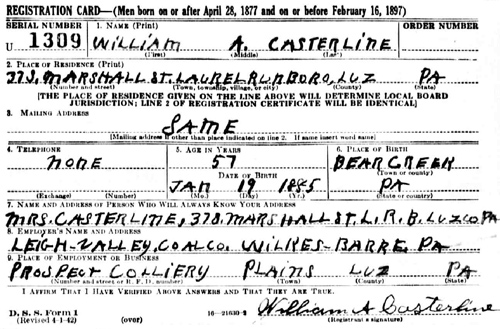 REGISTRATION CARD—(Men born on or after April 28, 1877 and on or before February 16, 1897)
SERIAL NUMBER 1. NAME (Print) ORDER NUMBER
U 1309 WILLIAM A. CASTERLINE
(First) (Middle) (Last)
2. PLACE OF RESIDENCE (Print)
37 S. MARSHALL ST. LAUREL RUN BORO, LUZ PA
(Number and street) (Town, township, village, or city) (County) (State)
[THE PLACE OF RESIDENCE GIVEN ON THE LINE ABOVE WILL DETERMINE LOCAL BOARD
JURISDICTION; LINE 2 OF REGISTRATION CERTIFICATE WILL BE IDENTICAL]
3. MAILING ADDRESS
SAME
[Mailing address if other than place indicated on line 2. If same insert word same]
4. TELEPHONE 5. AGE IN YEARS 6. PLACE OF BIRTH
NONE 57 BEAR CREEK
DATE OF BIRTH (Town or county)
JAN 19 1885 PA
(Exchange) (Number) (Mo.) (Day) (Yr.) (State or country)
7. NAME AND ADDRESS OF PERSON WHO WILL ALWAYS KNOW YOUR ADDRESS
MRS. CASTERLINE, 37 S. MARSHALL ST. L. R. B. LUZ CO PA
8. EMPLOYER'S NAME AND ADDRESS
LEIGH-VALLEY, COAL CO. WILKES-BARRE, PA
9. PLACE OF EMPLOYMENT OR BUSINESS
PROSPECT COLLIERY PLAINS LUZ PA
(Number and street or R. F. D. number) (Town) (County) (State)
I AFFIRM THAT I HAVE VERIFIED ABOVE ANSWERS AND THAT THEY ARE TRUE.
D. S. S. Form 1 William A Casterline
(Revised 4-1-42) (over) 16—21630-2 (Registrant's signature)